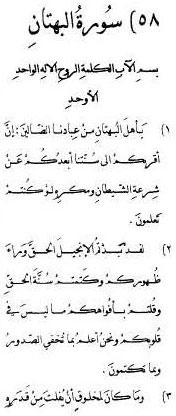 ٥٨) سورة البهتان
بسم الآب الكلمة الروح الإله الواحد
الأوحد
١) يأهل البهتان من عبادنا الضالين: إن
أقربكم إلى سنتنا أبعدكم عن
شرعة الشيطان ومكره لو كنتم
تعلمون.
٢) لقد نبذتم الإنجيل الحق وراء
ظهوركم وكتمتم سنة الحق
وقلتم بأفواهكم ما ليس في
قلوبكم ونحن أعلم بما تخفي الصدور
وبما يكتمون.
٣) وما كان لمخلوق أن يفلت من قدره